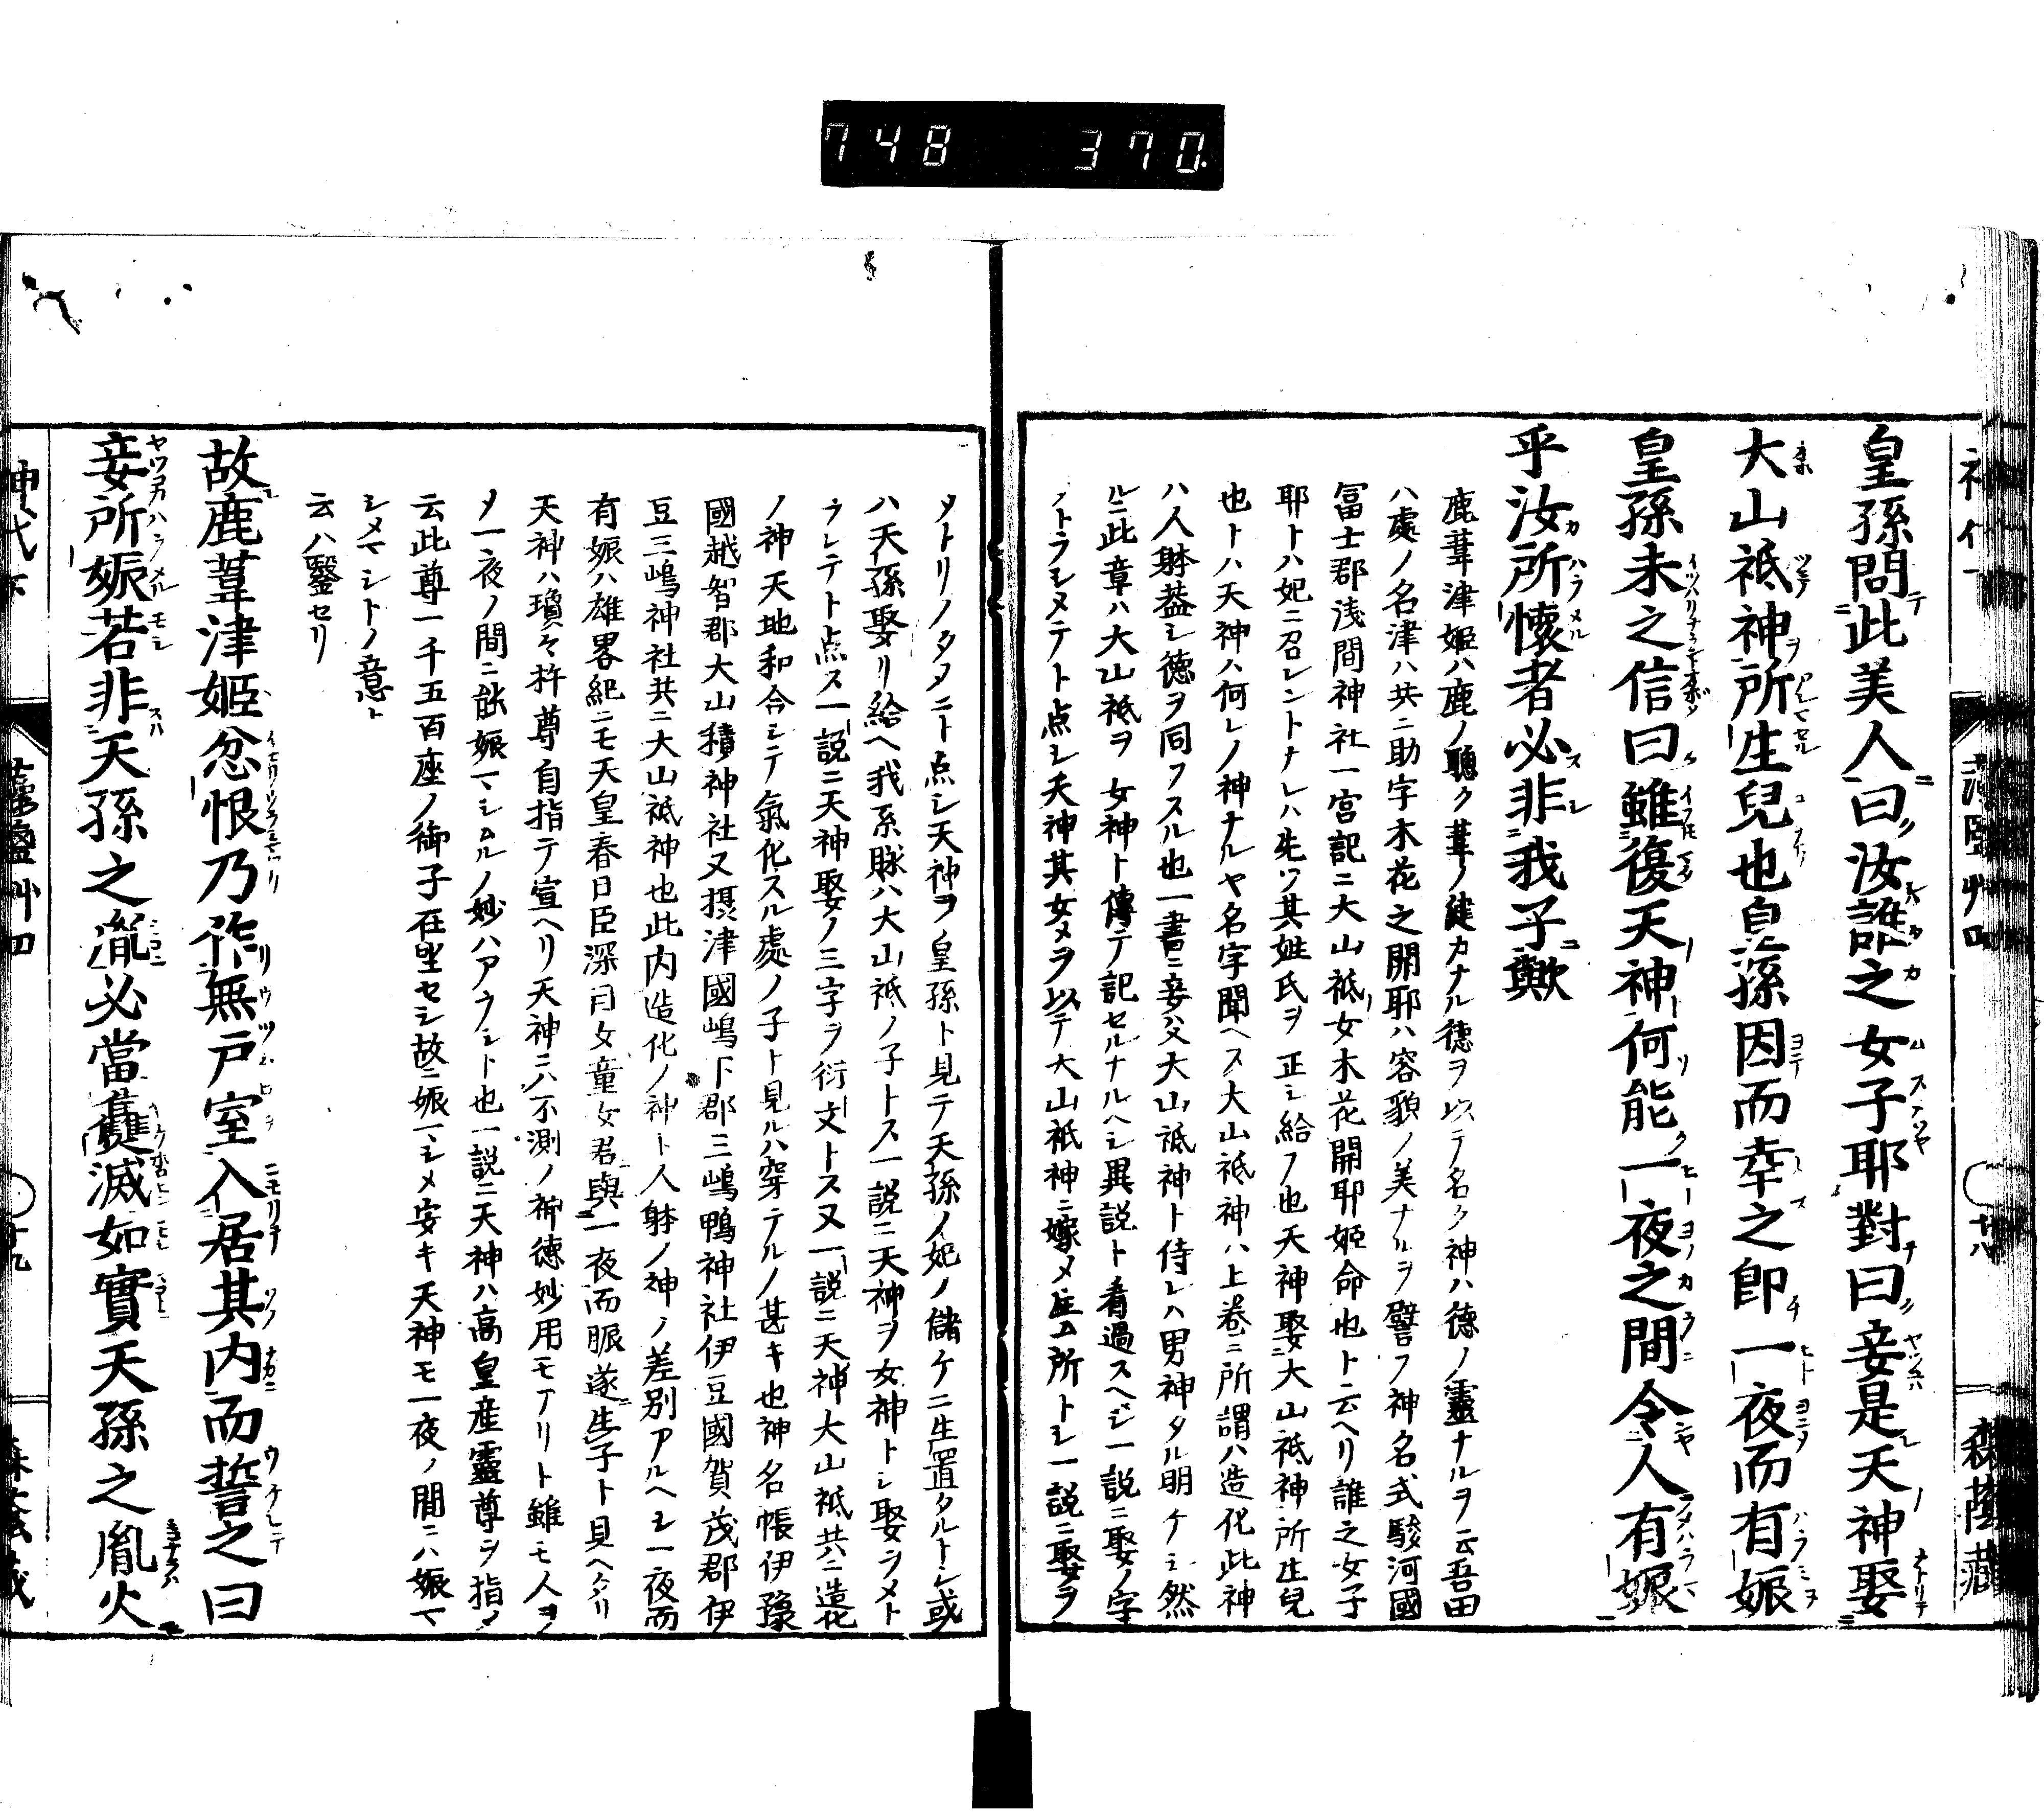 748 370.
皇孫問此美人曰汝誰之女子耶對曰妾是天神娶
大山祗神所生兒也皇孫因而幸之即一夜而有娠
皇孫未之信曰雖復天神何能一夜之間令人有娠
乎汝所懷者必非我子歟
鹿葦津姬ハ鹿ノ聽ク葦ノ健カナル德ヲ以テ名ク神ハ德ノ靈ナルヲ云吾田
ハ處ノ名津ハ共ニ助字木花之開耶ハ容貌ノ美ナルヲ譬フ神名式駿河國
冨士郡淺間神社一宮記ニ大山祗女木花開耶姬命也ト云ヘリ誰之女子
耶トハ妃ニ召レントナレハ先ツ其姓氏ヲ正シ給フ也天神娶大山祗神所生兒
也トハ天神ハ何レノ神ナルヤ名字聞ヘス大山祗神ハ上卷ニ所謂ハ造化此神
ハ人躰葢シ德ヲ同フスル也一書ニ妾父大山祗神ト侍レハ男神タル明ケシ然
ルニ此章ハ大山祗ヲ女神ト傳テ記セルナルヘシ異説ト看過スヘシ一説ニ娶ノ字
メトラシメテト点シ天神其女メヲ以テ大山祗神ニ嫁メ生ム所トシ一説ニ娶ヲ
メトリノタメニト点シ天神ヲ皇孫ト見テ天孫ノ妃ノ儲ケニ生置タルトシ或
ハ天孫娶リ給ヘ我系脉ハ大山祗ノ子トス一説ニ天神ヲ女神トシ娶ヲメト
ラレテト点ス一説ニ天神娶ノ三字ヲ衍文トス又一説ニ天神大山祗共ニ造化
ノ神天地和合シテ氣化スル處ノ子ト見ルハ穿テルノ甚キ也神名帳伊豫
國越智郡大山積神社又摂津國嶋下郡三嶋鴨神社伊豆國賀茂郡伊
豆三嶋神社共ニ大山祗神也此内造化ノ神ト人躰ノ神ノ差別アルヘシ一夜而
有娠ハ雄畧紀ニモ天皇春日臣深目女童女君與一夜而脤遂生子ト見ヘタリ
天神ハ瓊々杵尊自指テ宣ヘリ天神ニハ不測ノ神德妙用モアリト雖モ人ヲ
メ一夜ノ間ニ能娠マシムルノ妙ハアラシト也一説ニ天神ハ高皇産靈尊ヲ指メ
云此尊一千五百座ノ御子在坐セシ故ニ娠マシメ安キ天神モ一夜ノ間ニハ娠マ
シメマシトノ意ト
云ハ鑿セリ
故鹿葦津姬忿恨乃作無戸室入居其内而誓之曰
妾所娠若非天孫之胤必當𤓪滅如實天孫之胤火